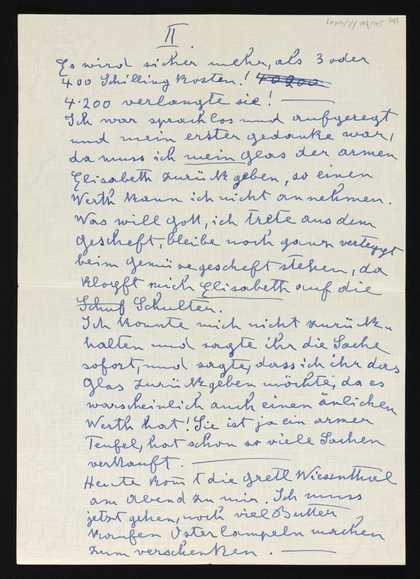 II
Es wird sicher mehr, als 3 oder
400 Schilling kosten!
4.200 verlangte sie!
Ich war sprachlos und aufgeregt
und mein erster gedanke war,
da muss ich mein Glas der armen
Elisabeth zurück geben, so einen
Werth kann ich nicht annehmen.
Was will Gott, ich trete aus dem
Gescheft, bleibe noch ganz
beim Gemüsegescheft stehen, da
klopft mich Elisabeth auf die
Schulter.
Ich konnte mich nicht zurück-
halten und sagte ihr die Sache
sofort, und sagte, dass ich ihr das
Glas zurück geben möchte, da es
warscheinlich auch einen änlichen
Werth hat! Sie ist ja ein armer
Teufel, hat schon so viele Sachen
verkauft.
Heute komt die Gretl Wiesenthal
am Abend zu mir. Ich muss
jetzt gehen, noch viel Butter
kaufen Osterlampeln machen
zum verschenken.